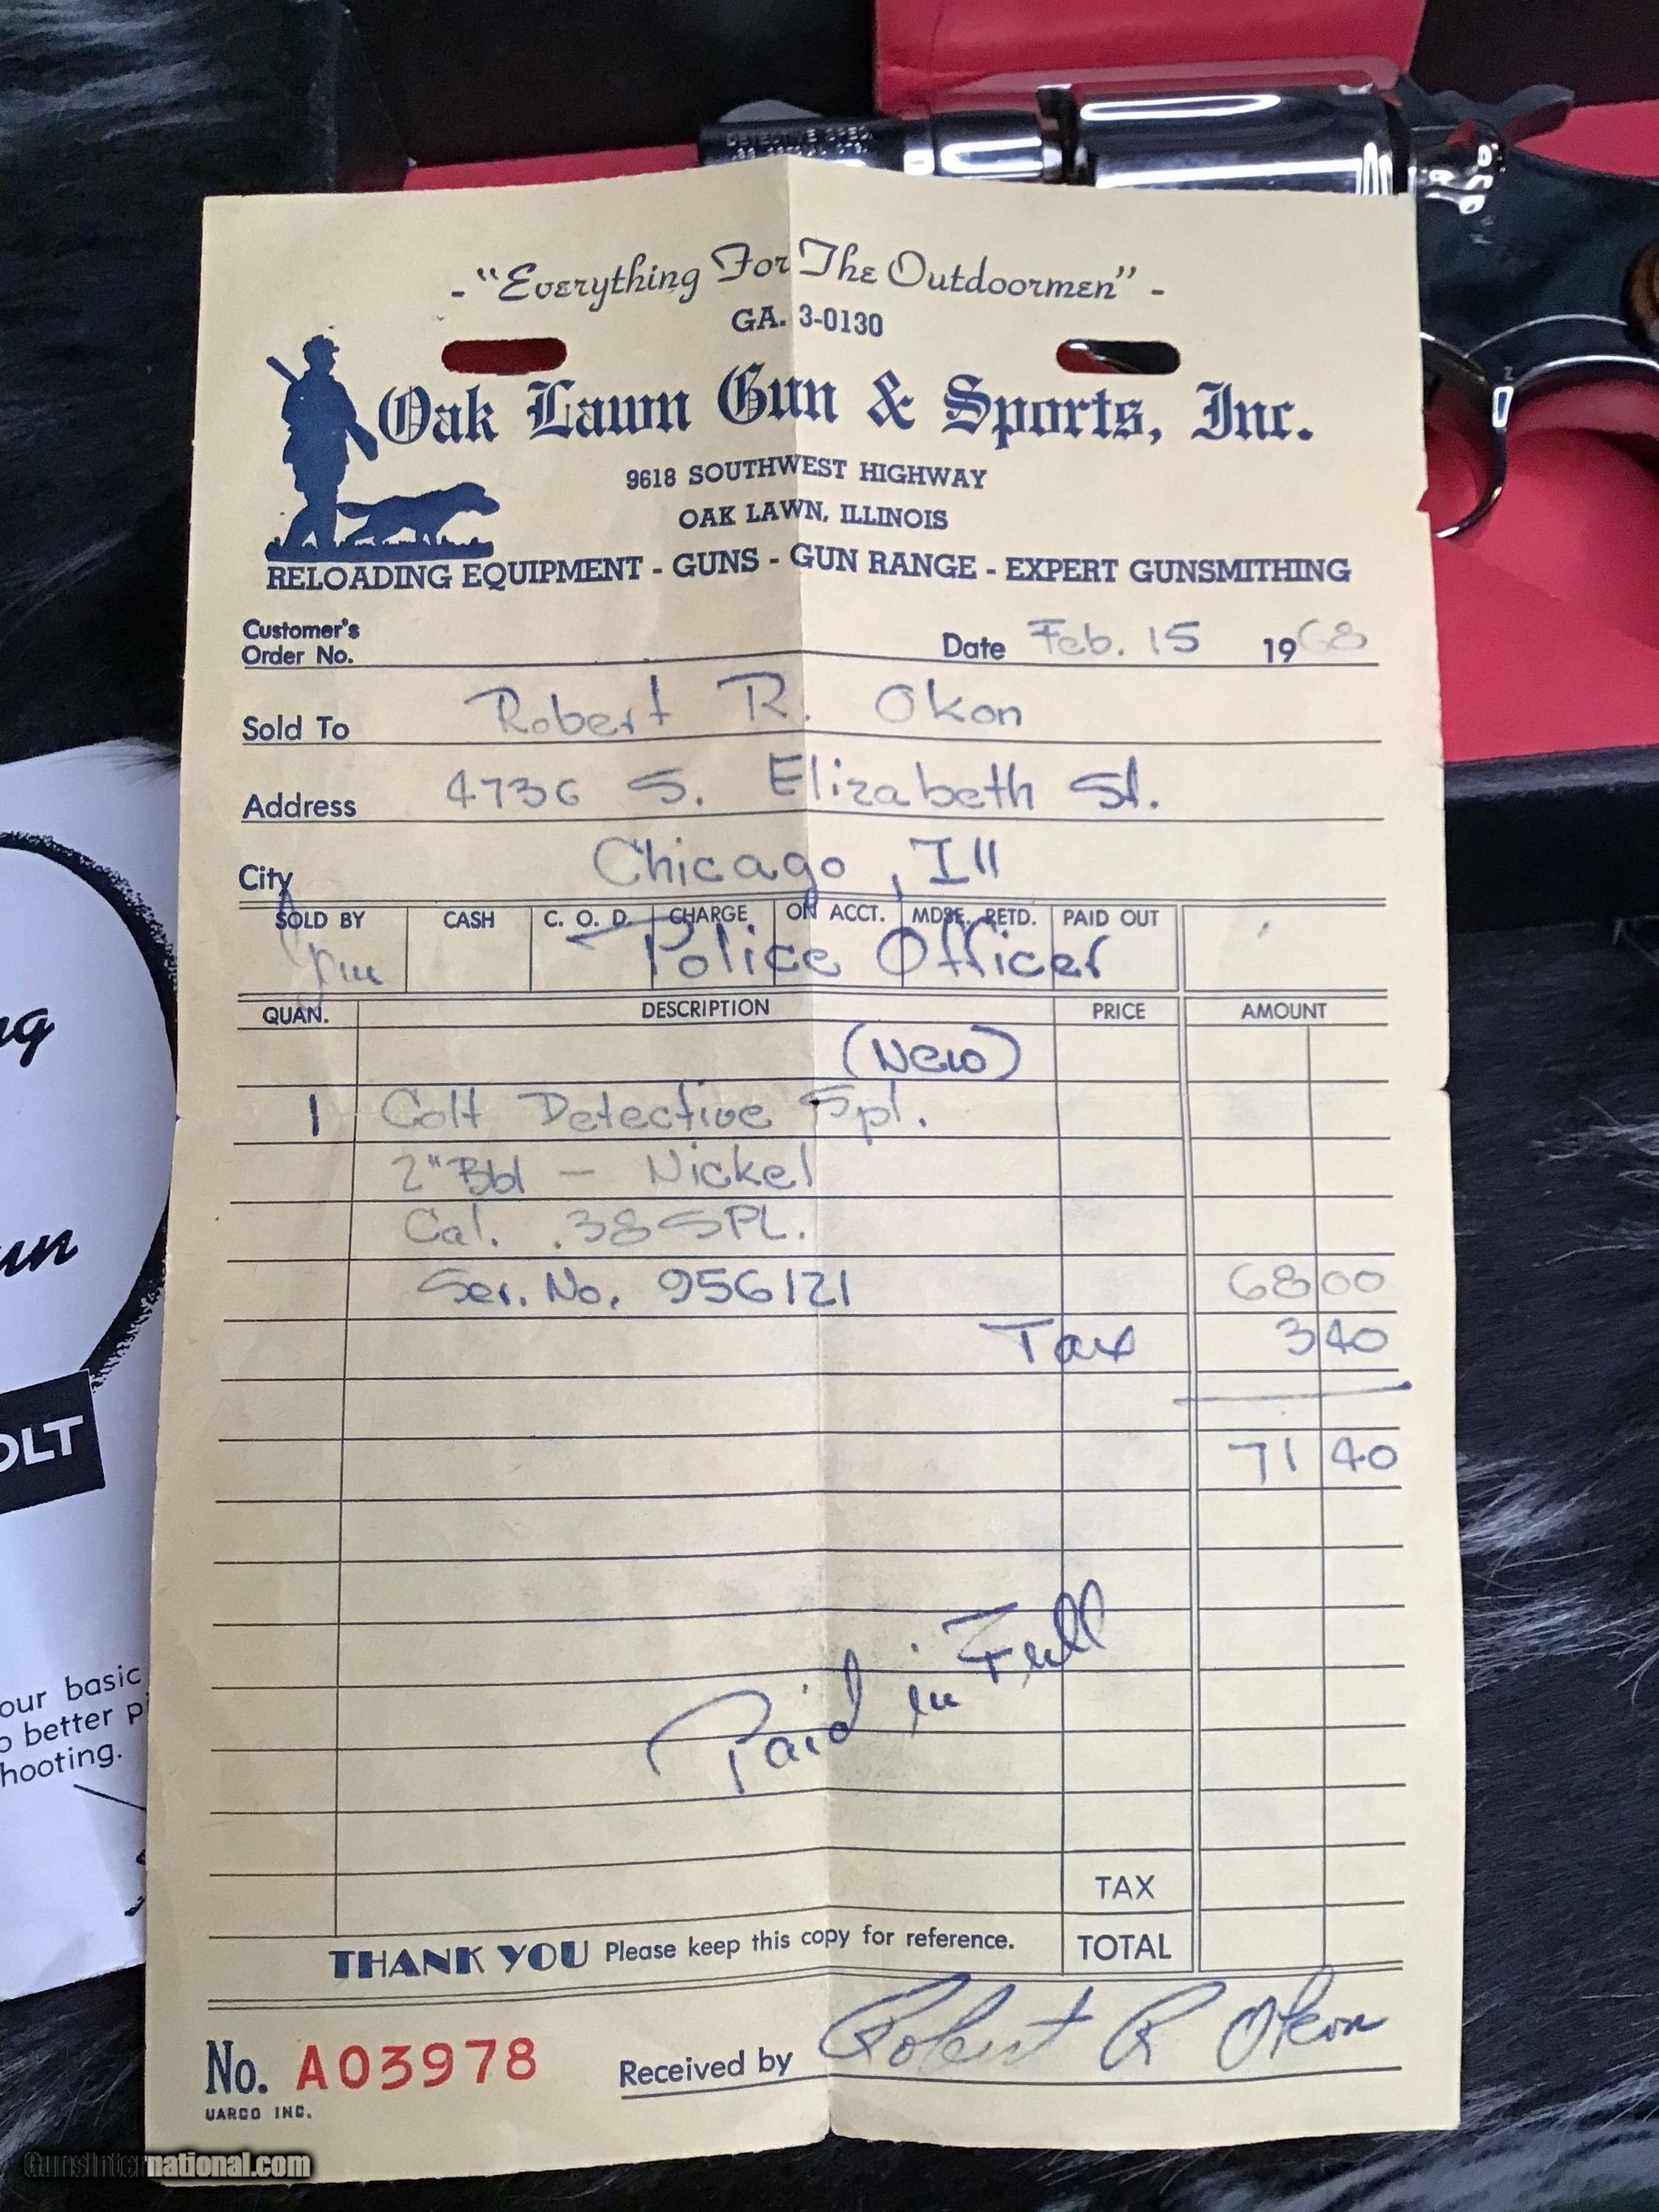 DETECTIVE SPEC.
- "Everything For The Outdoormen" -
GA. 3-0130
Oak Lawn Gun & Sports, Inc.
9618 SOUTHWEST HIGHWAY
OAK LAWN, ILLINOIS
RELOADING EQUIPMENT - GUNS - GUN RANGE - EXPERT GUNSMITHING
Customer's
Order No.
Date Feb. 15 1968
Sold To Robert R. Okon
Address 4736 S. Elizabeth St.
City Chicago, Ill
SOLD BY CASH C. O. D. CHARGE ON ACCT. MDSE. RETD. PAID OUT
Jim Police Officer
QUAN. DESCRIPTION PRICE AMOUNT
(New)
1 Colt Detective Spl.
2" Bbl - Nickel
Cal. .38 SPL.
Ser. No. 956121 68 00
Tax 3 40
71 40
Paid in Full
TAX
THANK YOU Please keep this copy for reference. TOTAL
No. A03978 Received by Robert R Okon
UARCO INC.
OLT
our basic
better
hooting.
GunsInternational.com